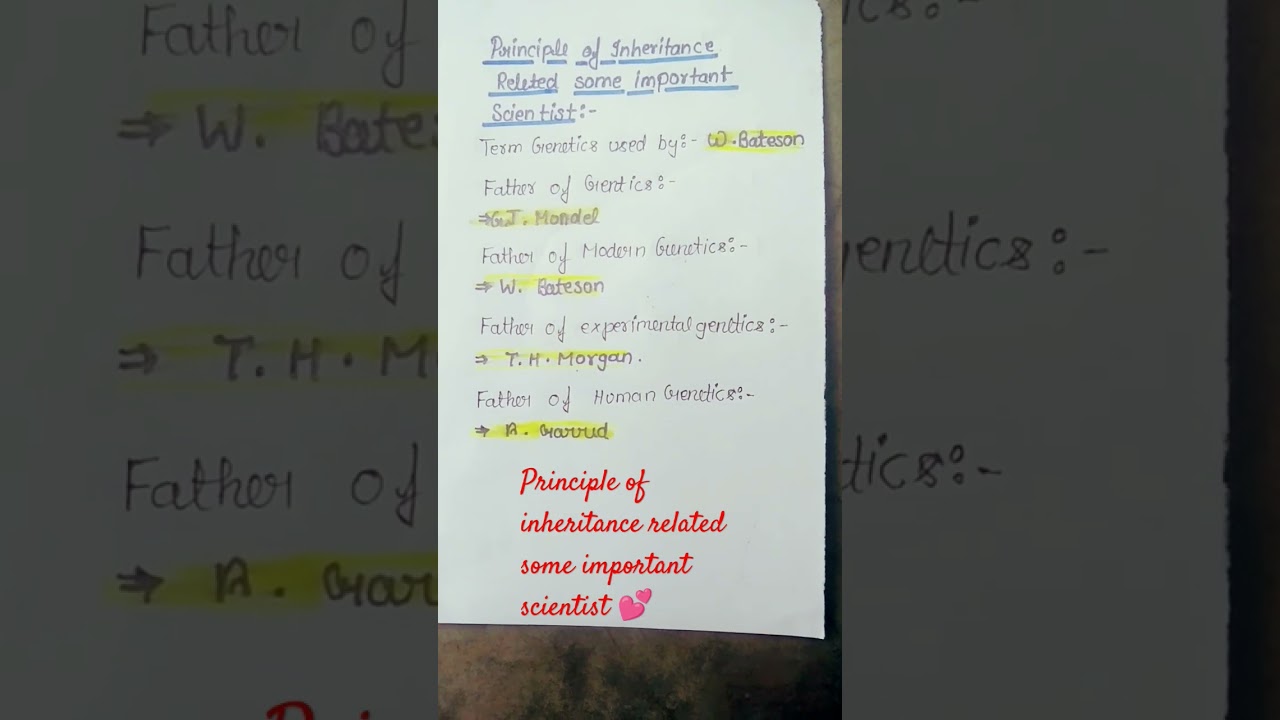 Principle of Inheritance
Releted some important
Scientist:-
Term Genetics used by:- W.Bateson
Father of Gentics:-
⇒G.J. Mondel
Father of Modern Genetics:-
⇒ W. Bateson
Father of experimental genetics:-
⇒ T.H.Morgan.
Father of Human Genetics:-
⇒ A. Garrud
Principle of
inheritance related
some important
scientist 💕
Father of
⇒ W. Bates
Father of
enetics:-
⇒ T.H.M
Father of
tics:-
⇒ A. Garru